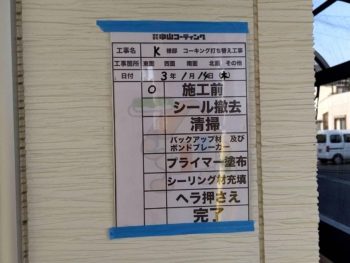 株式会社 中山コーティング
工事名 K 様邸 コーキング打ち替え工事
工事箇所 東面 西面 南面 北面 その他
日付 3年 1月 14日 (木)
○ 施工前
シール撤去
清掃
バックアップ材 及び
ボンドブレーカー
プライマー塗布
シーリング材充填
ヘラ押さえ
完了